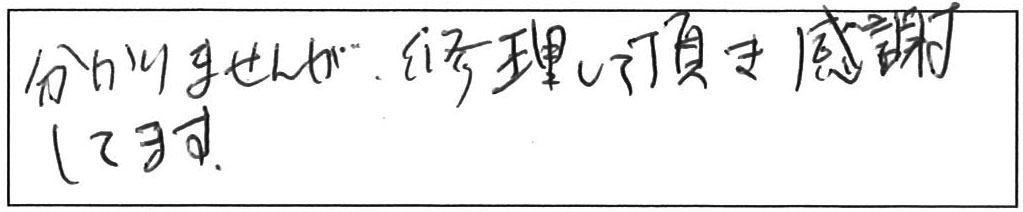 分かりませんが、修理して頂き感謝
してます。